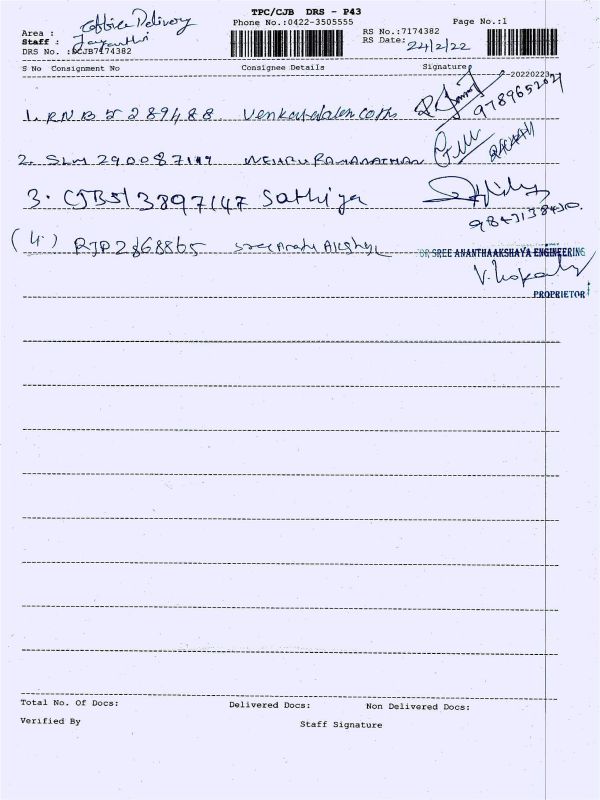 TPC/CJB DRS - P43
Area : Office Delivery
Phone No.:0422-3505555
Page No.:1
Staff : Jayanthi
RS No.:7174382
RS Date: 24/2/22
DRS No. :SCJB7174382
S No Consignment No Consignee Details Signature
20220223
1. RNB 5289488
9789652021
2. SLM 290087117 NEHRU RAMANATHAN
3. CJB513897147 Sathiya
9843138430.
(4) RJP2868865
FOR SREE ANANTHAAKSHAYA ENGINEERING
PROPRIETOR
Total No. Of Docs: Delivered Docs: Non Delivered Docs:
Verified By Staff Signature